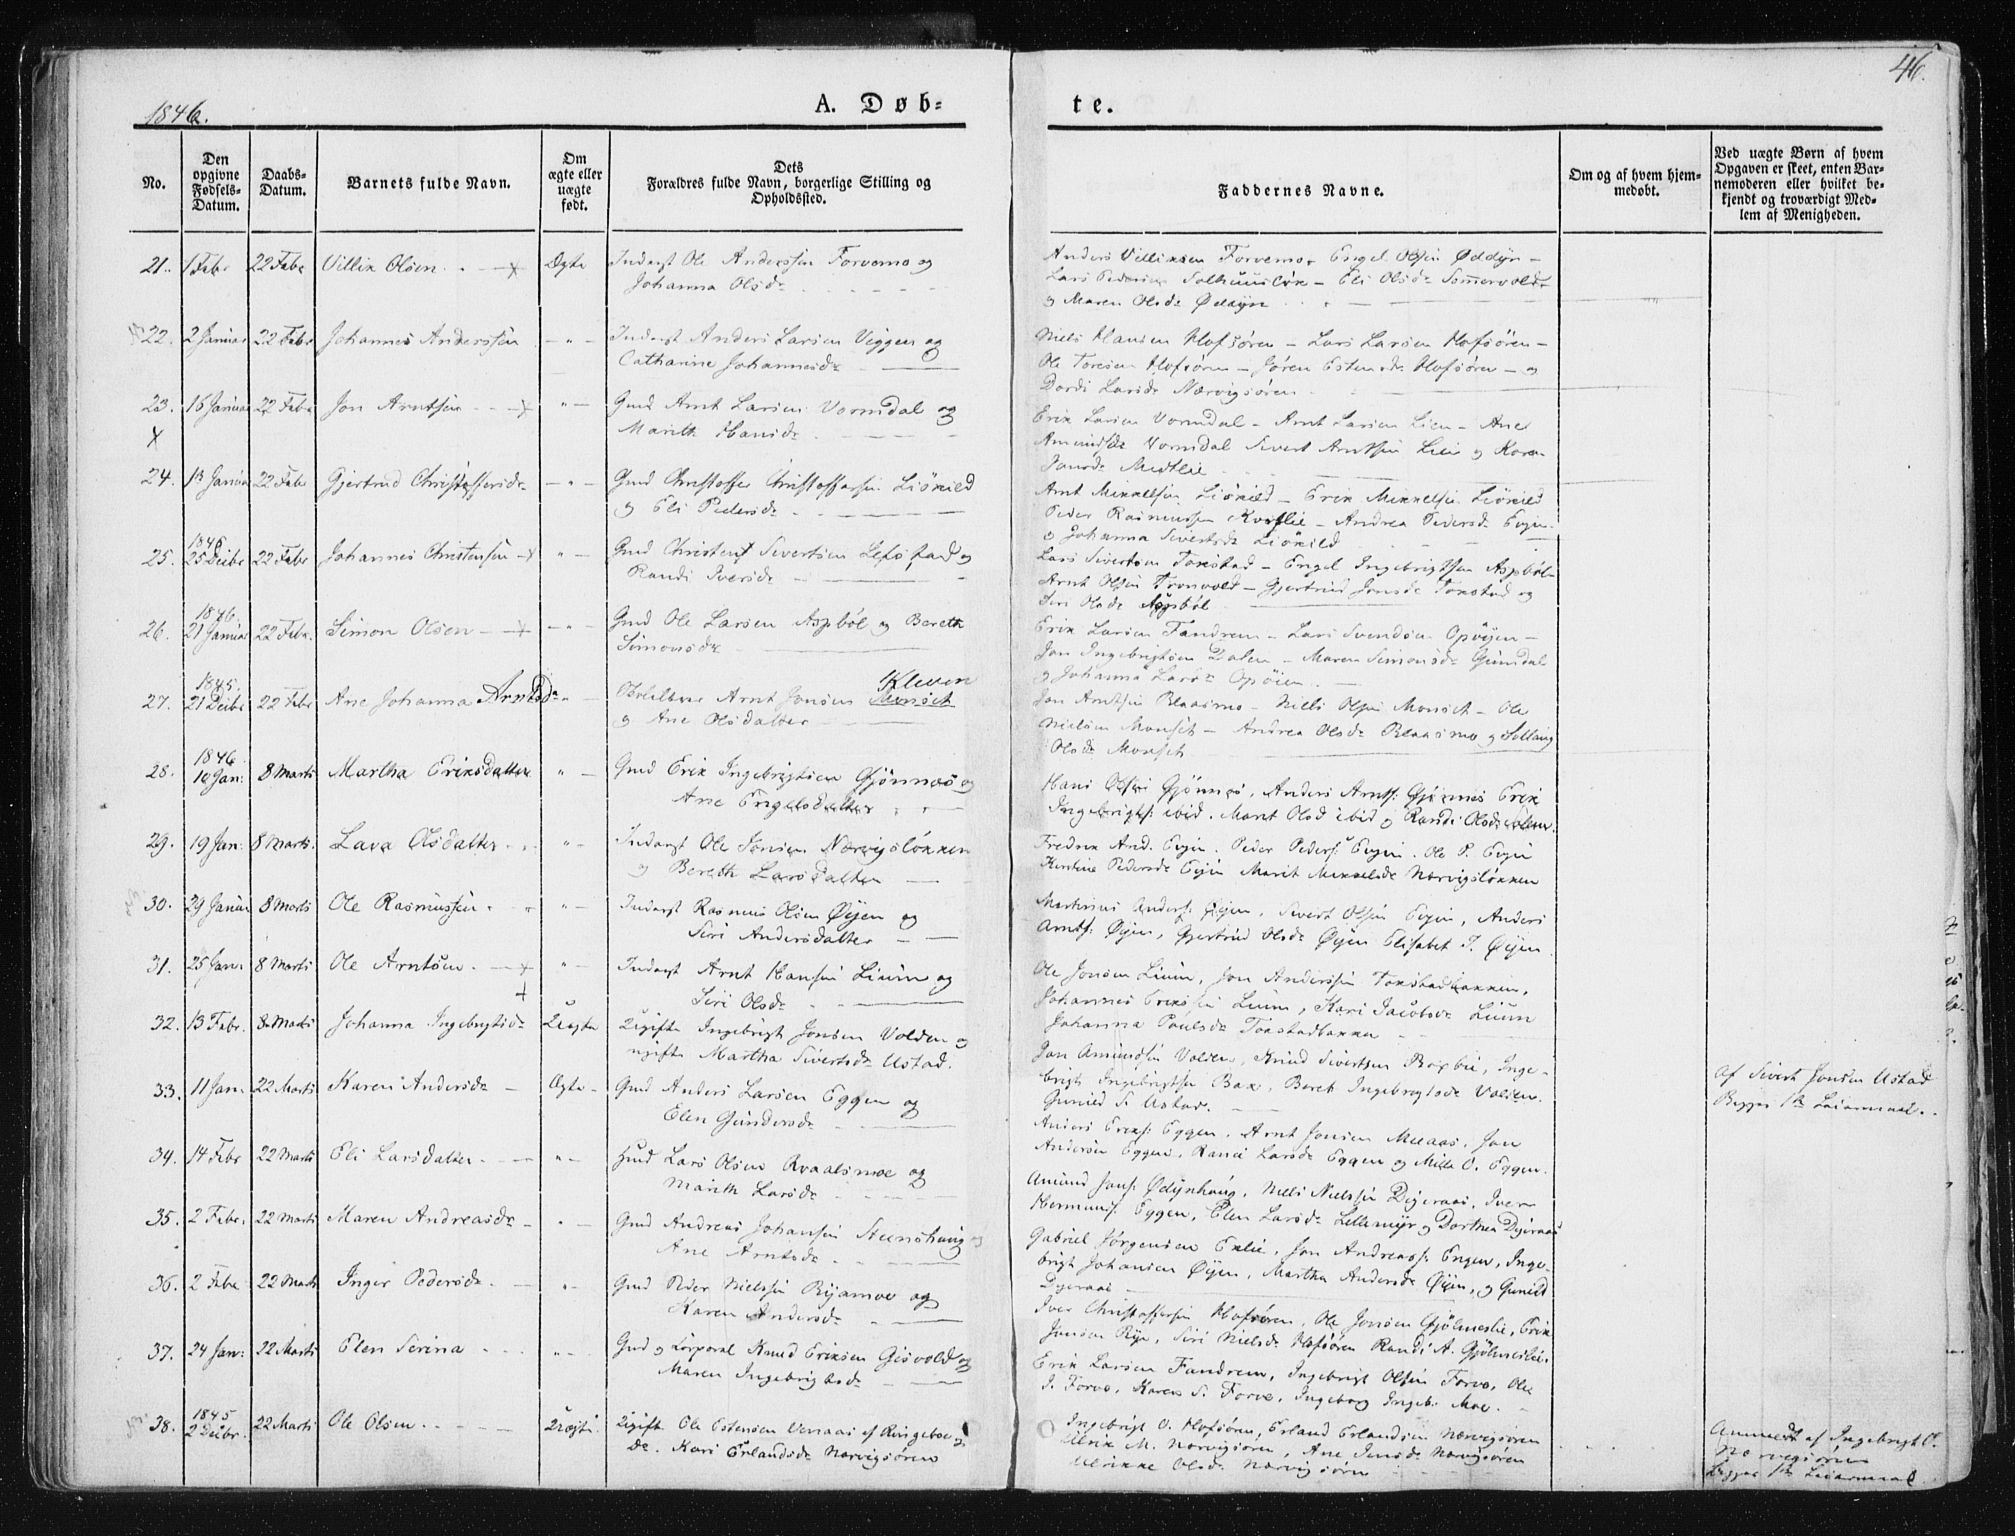 46.
1846.
A. Døb=
te.
No.
Den opgivne Fødsels-Datum.
Daabs-Datum.
Barnets fulde Navn.
Om ægte eller uægte født.
Dets Forældres fulde Navn, borgerlige Stilling og Opholdssted.
Faddernes Navne.
Om og af hvem hjemmedøbt.
Ved uægte Børn af hvem Opgaven er skeet, enten Barnemoderen eller hvilket bekjendt og troværdigt Medlem af Menigheden.
21. 1 Febr 22 Febr Villik Olsen Ægte Inderst Ole Anderssen Forvemo og
Johanna Olsdr
Anders Villiksen Forvemo, Engel Olsen Øedøyn -
Lars Pedersen - Eli Olsdr
og Maren Olsdr Ødøyn
22. 2 Januar 22 Febr Johannes Anderssen - " - Inderst Anders Larsen Viggen og
Catharine Johannesdr
Niels Hansen Hofsören - Lars Larsen Hofsören -
Ole Toresen Hofsören - Jören Estensdr Hofsören - og
Dordi Larsdr Nærvigsören
23. 16 Januar 22 Febr Jon Arntsen " - Gmd Arnt Larsen Vormdal og
Marith Hansdr
Erik Larsen Vormdal - Arnt Larsen Lien - Ane
Amundsdr Vormdal Sivert Arntsen Lien og Karen
Jonsdr Midtlie
24. 13 Januar 22 Febr Gjertrud Christoffersdr - " - Gmd Christoffer Christoffersen Liökild
og Eli Pedersdr
Arnt Mikkelsen Liökild - Erik Mikkelsen Liökild
Peder Rasmussen - Andrea Pedersdr Evjen
og Johanna Sivertsdr Liökild
25. 1845 25 Decbr 22 Febr Johannes Christensen " - Gmd Christen Sivertsen Lefstad og
Randi Iversdr
Lars Sivertsen Tokstad - Engel Ingebrigtsen Aspböl -
Arnt Olsen Tronvold - Gjertrud Jonsdr Tokstad og
Siri Olsdr Aspböl
26. 1846. 21 Januar 22 Febr. Simon Olsen - " - Gmd Ole Larsen Aspböl og Bereth
Simonsdr
Erik Larsen Fandrem - Lars Svendsen Opöyen -
Jon Ingebrigtsen Dalen - Maren Simonsdr
og Johanna Larsdr Opöien
27. 1845. 21 Decbr 22 Febr Ane Johanna Arntsdr " - Arnt Jonsen Monset Kleven
og Ane Olsdatter
Jon Arntsen Blaasmo - Niels Olsen Monset - Ole
Nielsen Monset - Andrea Olsdr Blaasmo og
Olsdr Monset
28. 1846 10 Jan: 8 Marts Martha Eriksdatter " - Gmd Erik Ingebrigtsen Gjönnæs og
Ane Engelsdatter
Hans Olsen Gjönnes, Anders Arnts: Gjönnes Erik
Ingebrigts: ibid. Marit Olsd ibid og Randi Olsdr
29. 19 Jan: 8 Marts. Lava Olsdatter " - Inderst Ole Jonsen Nærvigslökken
og Bereth Larsdatter
Fredrik And. Evjen. Peder Peders: Evjen. Ole P. Evjen
Kirstine Pedersdr Evjen Marit Mikkelsdr Nærvigslökken
30. 29 Januar 8 Marts Ole Rasmussen " - Inderst Rasmus Olsen Øyen og
Siri Andersdatter
Martinus Anders: Øyen, Sivert Olsen Evjen, Anders
Arnts: Øyen, Gjertrud Olsdr Øyen Elisabet J. Øyen.
31. 25 Jan: 8 Marts Ole Arntsen " - Inderst Arnt Hansen Lium og
Siri Olsdr
Ole Jonsen Lium, Jon Anderssen Tokstadbakken,
Johannes Eriksen Lium, Kari Jacobsdr Lium
Johanna Paulsdr Tokstadbakken
32. 13 Febr. 8 Marts Johanna Ingebrigtsdr Uægte Ugifte Ingebrigt Jonsen Volden og
ugifte Martha Sivertsdr Ustad.
Jon Amundsen Volden, Knud Sivertsen, Inge-
brigt Ingebrigtsen Bak, Beret Ingebrigtsdr Volden.
Gunild S. Ustad.
Af Sivert Jonsen Ustad
Begges 1ste Leiermaal.
33. 11 Jan. 22 Marts Karen Andersdr Ægte - Gmd Anders Larsen Eggen og
Elen Gundersdr
Anders Eriks: Eggen. Arnt Jonsen Melaas, Jon
Andersen Eggen, Randi Larsdr Eggen og O. Eggen.
34. 14 Febr 22 Marts Eli Larsdatter " - Hmd Lars Olsen Kvaalsmoe og
Marith Larsdr
Amund Jons: Ødynhaug, Niels Nielssen Digeraas, Iver
Hermans: Eggen, Elen Larsdr Lillemyr og Dorthea Digeraas
35. 2 Febr. 22 Marts Maren Andreasdr " - Gmd Andreas Johansen Steenshaug og
Ane Arntsdr
Gabriel Jørgensen Eklie, Jon Andreass: Engen, Inge-
brigt Johansen Øyen, Martha Andersdr Øyen, og Gunild
Digeraas
36. 2 Febr 22 Marts Inger Pedersdr " Gmd Peder Nielssen Ryamoe og
Karen Andersdr
Iver Christoffersen Hofsören, Ole Jonsen Gjölmeslie, Erik
Jonsen Rye, Siri Nielsdr Hofsören Randi A. Gjölmeslie.
37. 24 Jan: 22 Marts Elen Serina " - Gmd og Corporal Knud Eriksen Gisvold og
Maren Ingebrigtsdr
Erik Larsen Fandrem, Ingebrigt Olsen Forve, Ole
J. Forve, Karen S. Forve, Ingeborg Ingebr. Moe.
38. 1845 2 Decbr. 22 Marts Ole Olsen Uægte Ugifte Ole Estensen Venaas af Ringeboe og
do. Kari Erlandsdr Nærvigsören
Ingebrigt O. Hofsören, Erland Erlandsen Nærvigsören
Ulrik M. Nærvigsören, Ane Jensdr Nærvigsören
Ulrikke Olsdr Nærvigsören
Anmeldt af Ingebrigt O.
Nærvigsören
begges 1ste Leiermaal